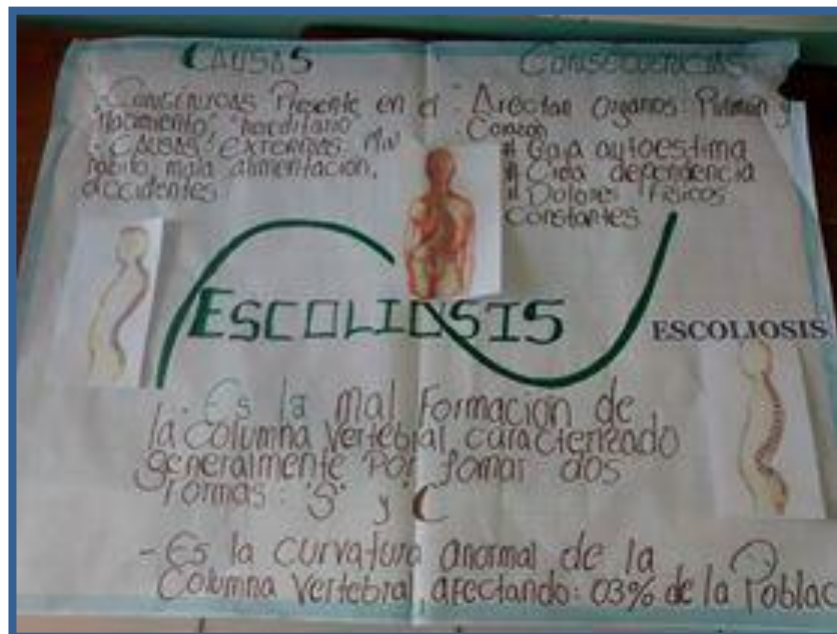 CAUSAS
. CONGÉNITAS Presente en el
"Nacimiento" "hereditario"
. CAUSAS EXTERNAS: Mal
habito, mala alimentación,
accidentes.
CONSECUENCIAS
. Afectan Organos: Pulmón y
Corazón
# Baja autoestima
# Crea dependencia
# Dolores Físicos
Constantes
ESCOLIOSIS
ESCOLIOSIS
. Es la Mal Formación de
la Columna Vertebral, caracterizado
generalmente por tomar dos
Formas: "S" y "C
- Es la Curvatura anormal de la
Columna Vertebral afectando: 03% de la Poblac